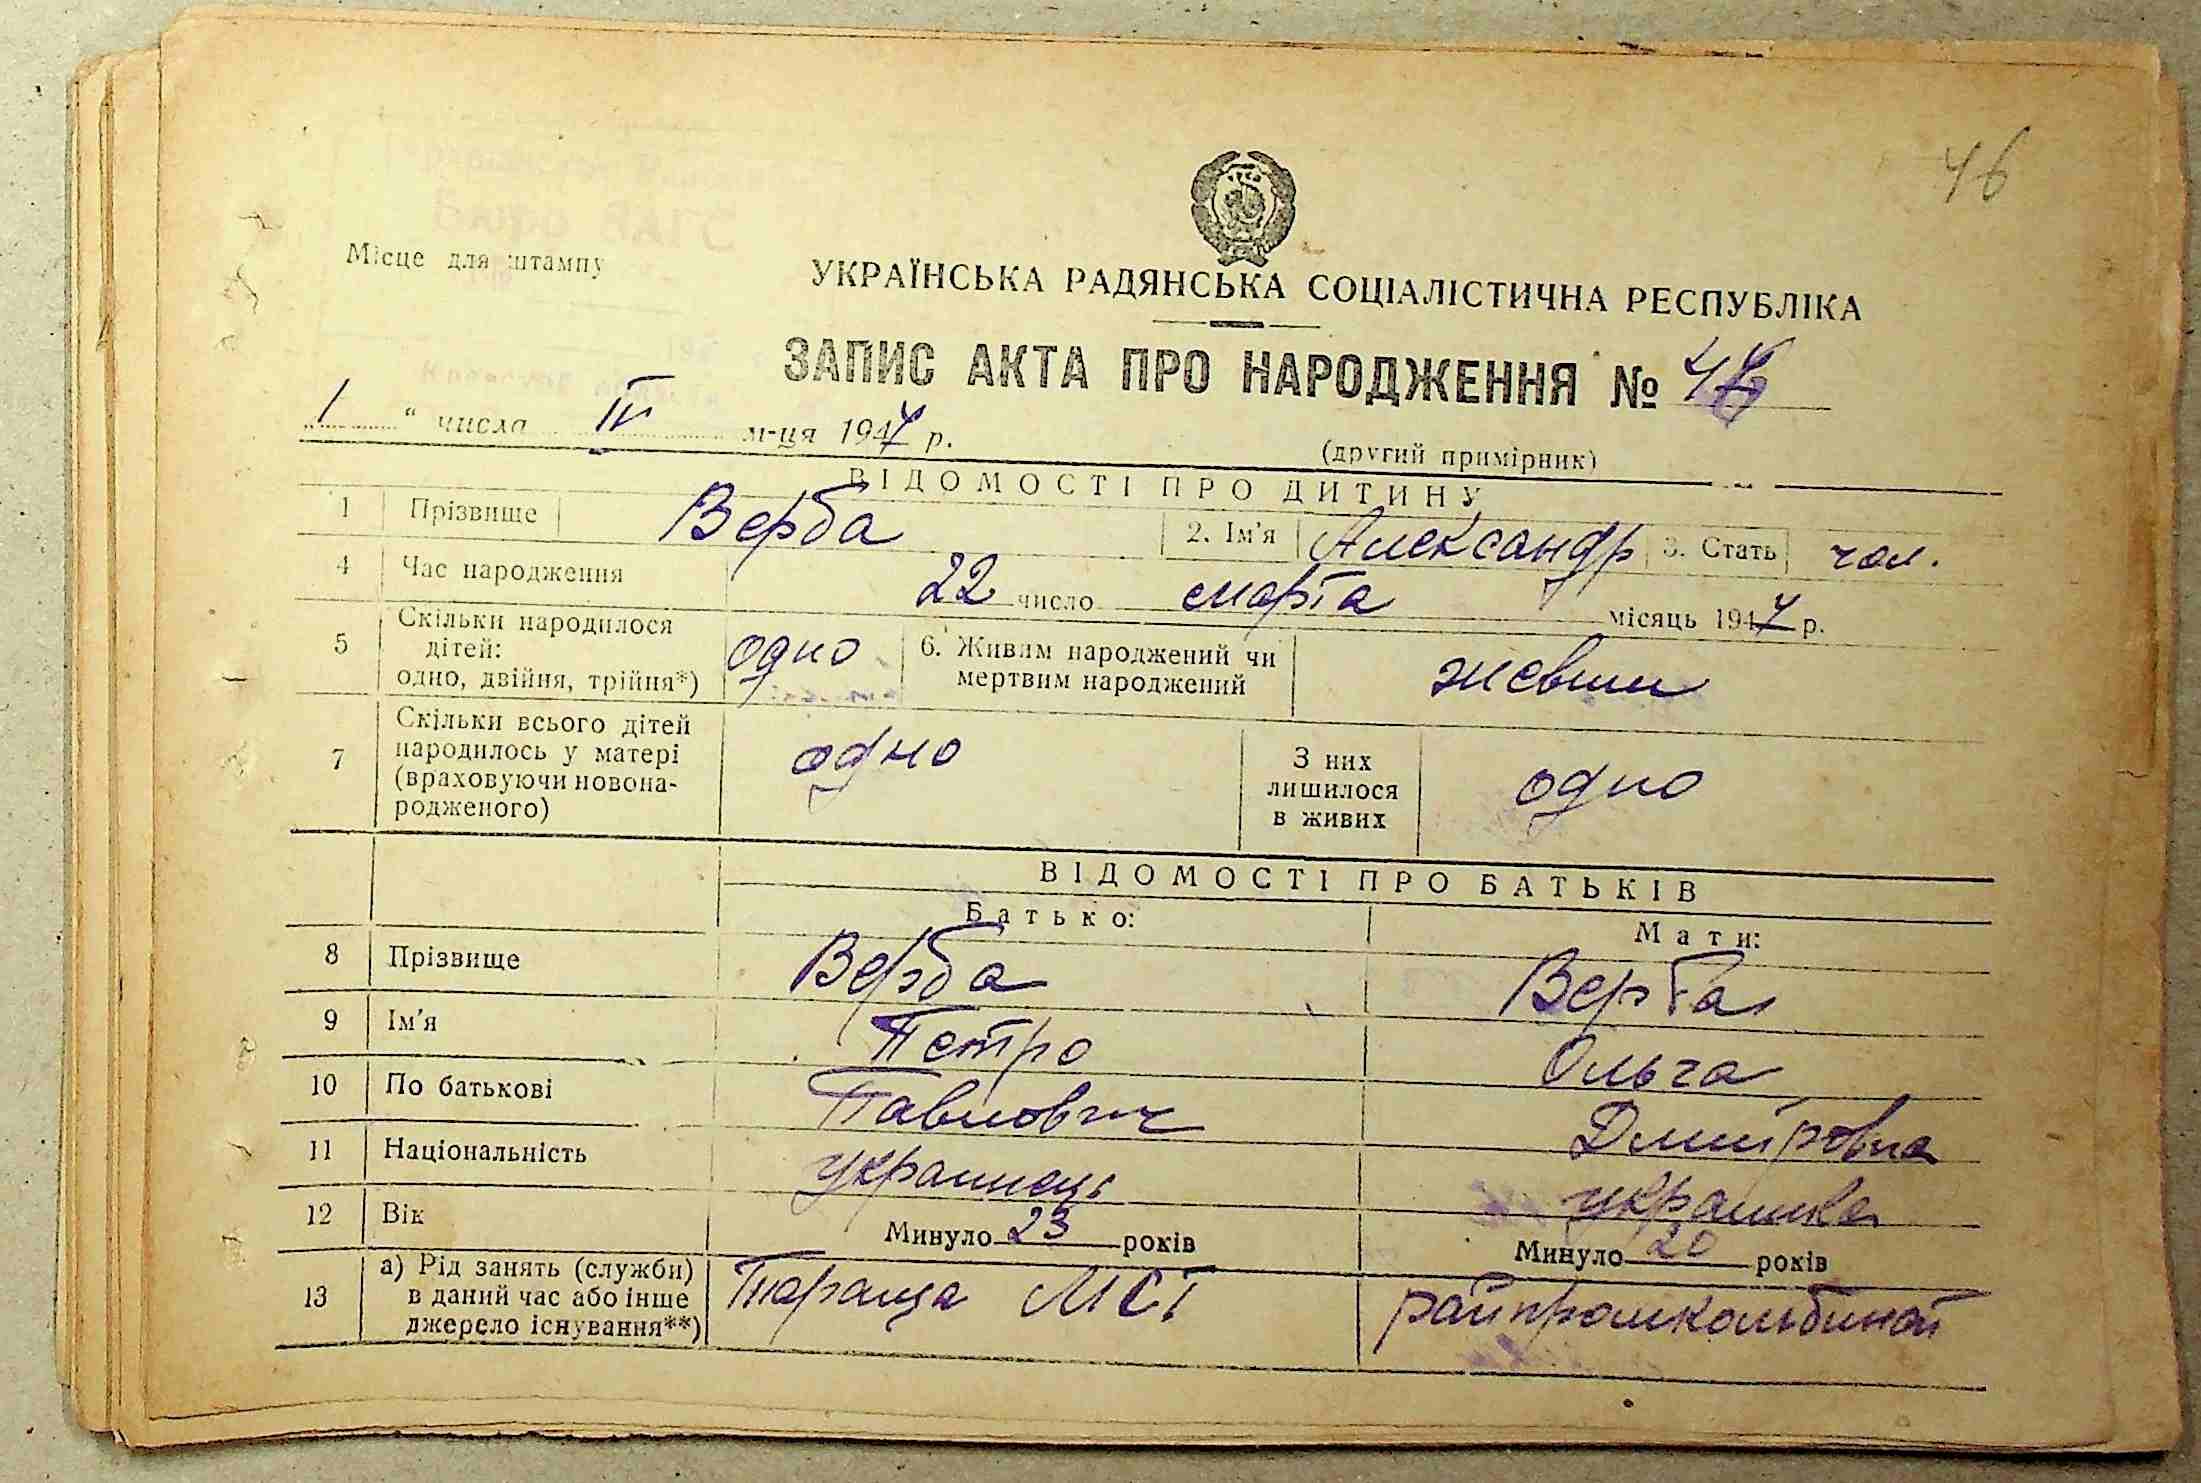 46
Місце для штампу
УКРАЇНСЬКА РАДЯНСЬКА СОЦІАЛІСТИЧНА РЕСПУБЛІКА
ЗАПИС АКТА ПРО НАРОДЖЕННЯ №
1 " числа IV м-ця 1947 р.
(другий примірник)
ВІДОМОСТІ ПРО ДИТИНУ
1 Прізвище Верба 2. Ім'я Александр 3. Стать чол.
4 Час народження 22 число марта місяць 1947 р.
5 Скільки народилося дітей: одно, двійня, трійня*) одно 6. Живим народжений чи мертвим народжений живим
7 Скільки всього дітей народилось у матері (враховуючи новона-родженого) одно З них лишилося в живих одно
ВІДОМОСТІ ПРО БАТЬКІВ
Батько: Мати:
8 Прізвище Верба Верба
9 Ім'я Петро Ольга
10 По батькові Павлович Дмитровна
11 Національність украинець украинка
12 Вік Минуло 23 років Минуло 20 років
13 а) Рід занять (служби) в даний час або інше джерело існування**) Тараща райпромкомбинат